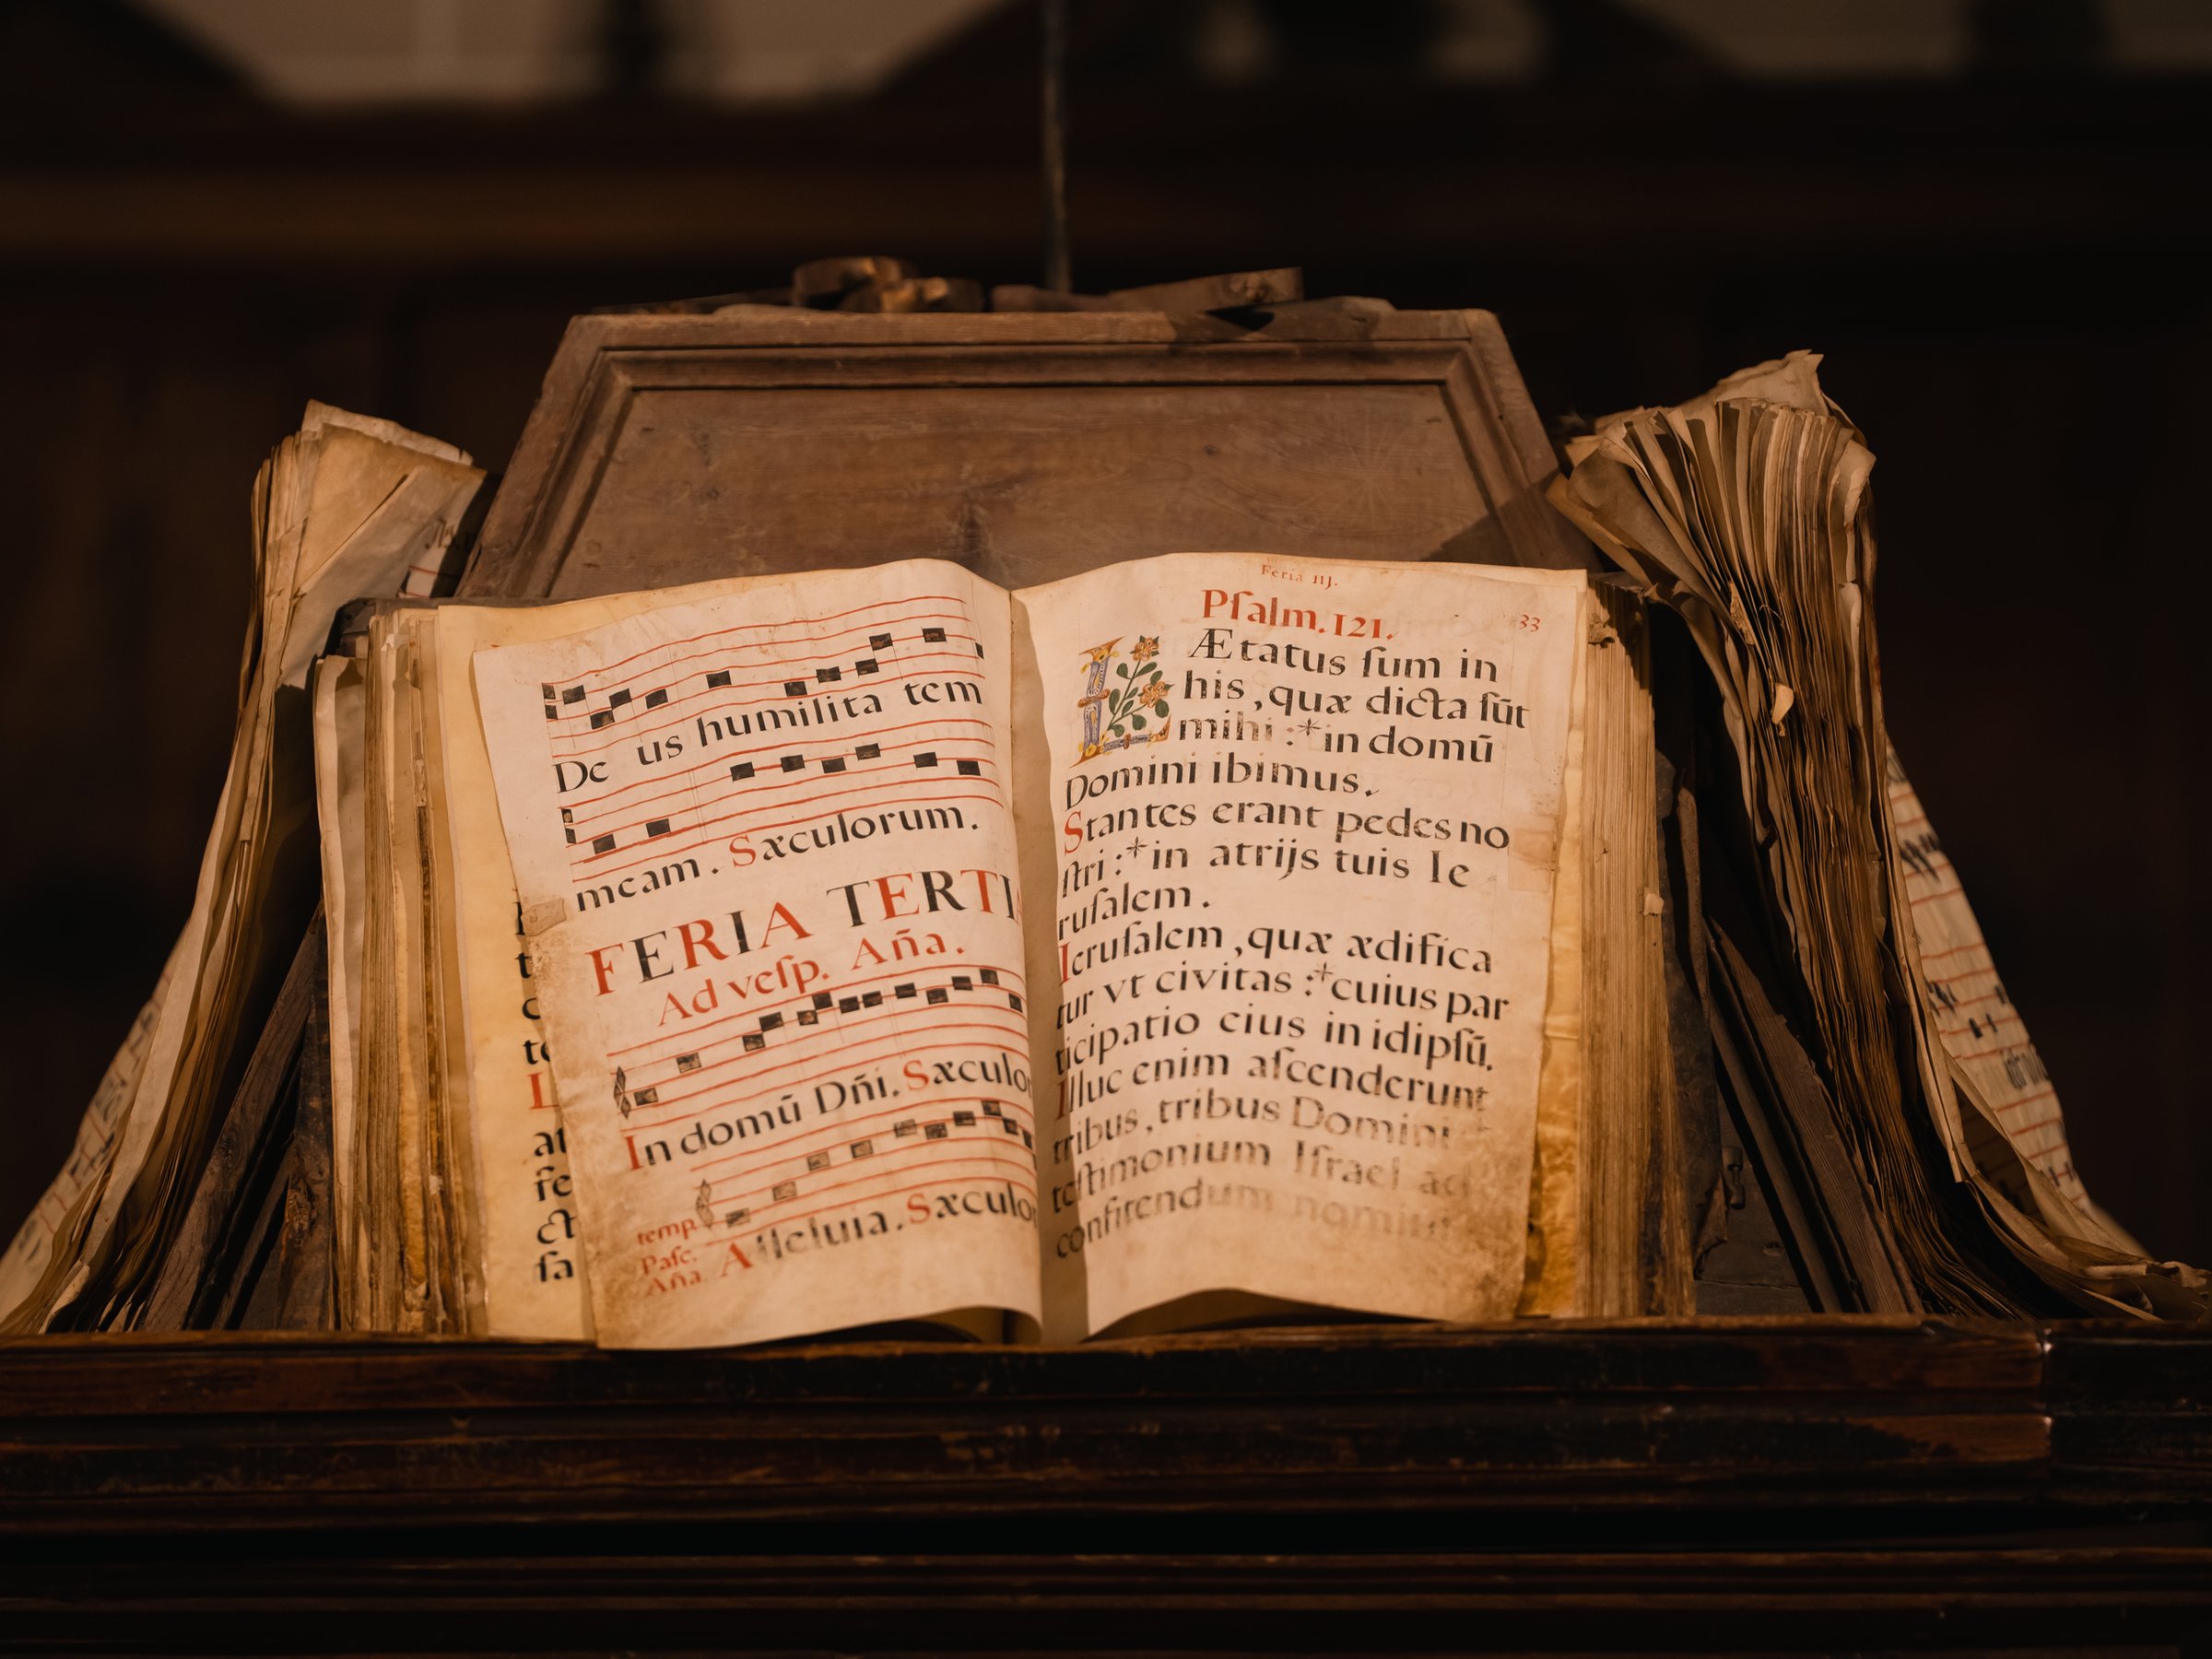 De us humilita tem
meam. Sæculorum.
FERIA TERTI
Ad veſp. Aña.
In domū Dñi. Sæculo
temp.
Paſc.
Aña.
Alleluia. Sæculo
Feria iij.
33
Pſalm. 121.
LÆtatus ſum in
his, quæ dicta ſūt
mihi :* in domū
Domini ibimus.
Stantes erant pedes no
ſtri :* in atrijs tuis Ie
ruſalem.
Ieruſalem, quæ ædifica
tur vt civitas :* cuius par
ticipatio eius in idipſū.
Illuc enim aſcenderunt
tribus, tribus Domini
teſtimonium Iſrael ad
confitendum nomini